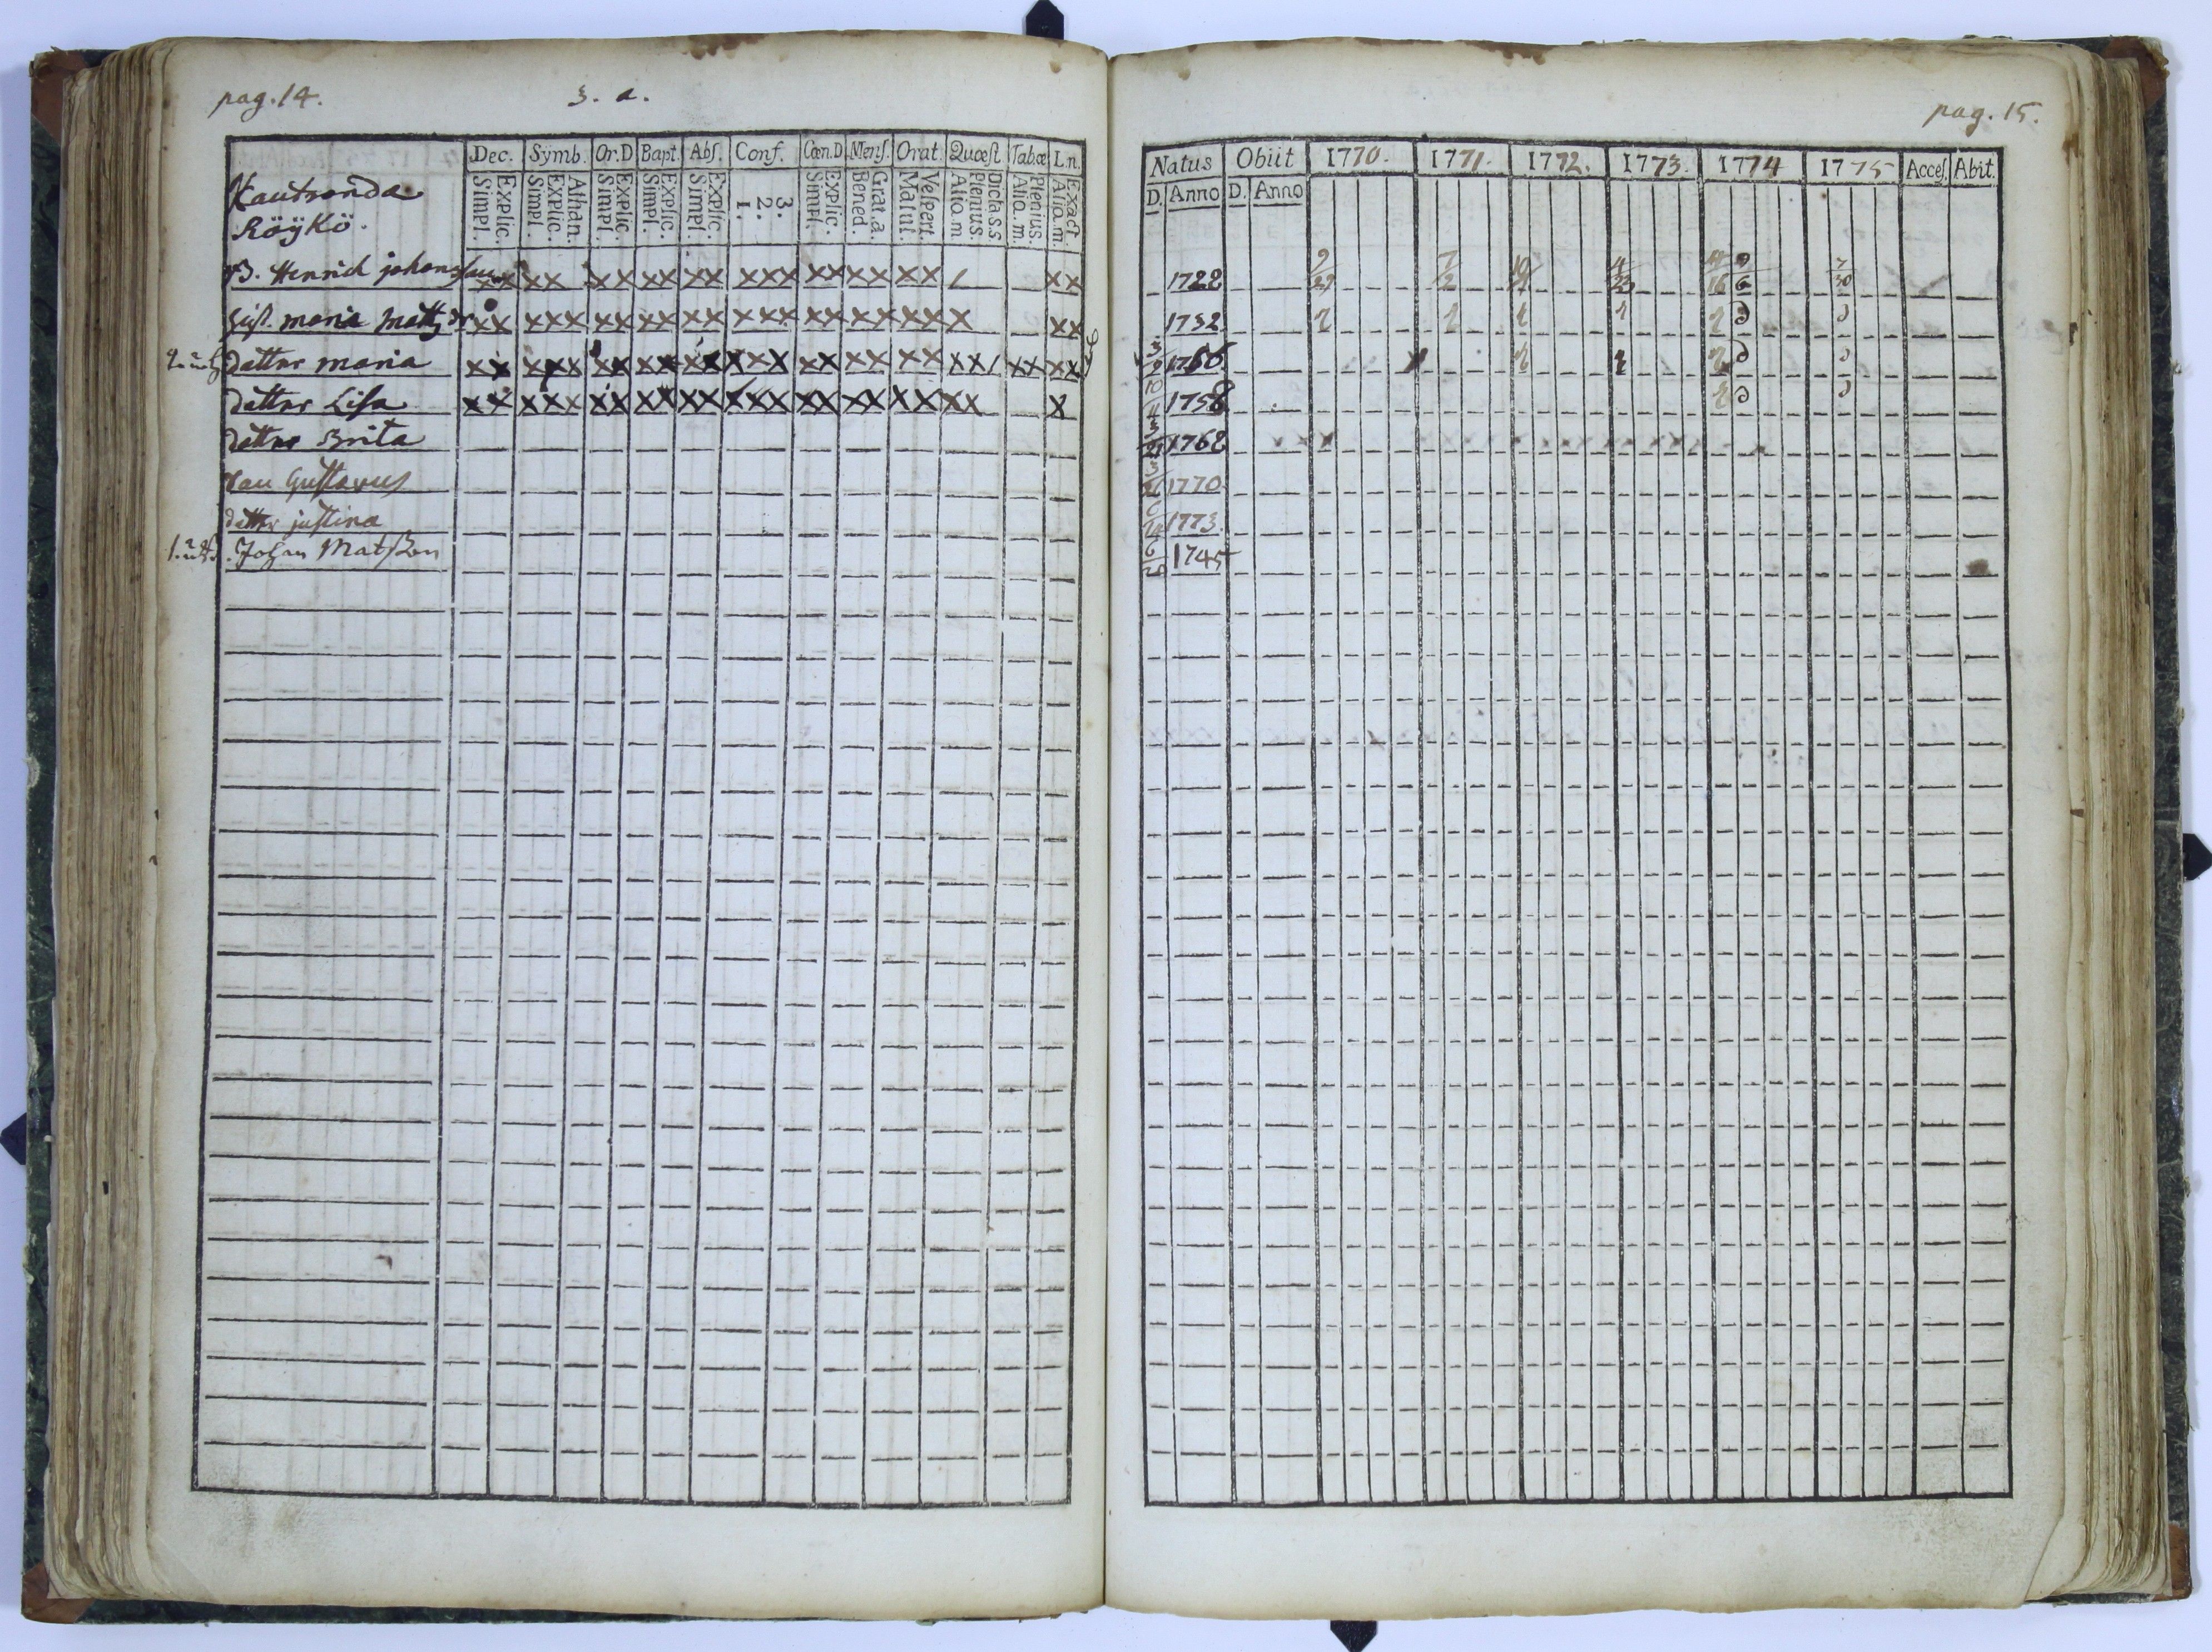 pag. 14. 3. a.
Dec. Symb. Or.D Bapt. Abſ. Conf. Cœn.D Menſ. Orat. Quæſt Tab.œ L.n.
Simpl. Explic. Simpl. Explic. Athan. Simpl. Explic. Simpl. Explic. Simpl. Explic. 1. 2. 3. Simpl. Explic. Bened. Grat.a. Matut. Veſpert. Alio.m Plenius. Dicta.s.s. Alio.m. Plenius. Alio.m. Exact
Kautronda
Röykö.
B. Henrich johansſon xx xx xx xx xx xxx xx xx xx / xx
Huſt. maria Mattz dr xx xxx xx xx xx xxx xx xx xx x xx
dotter maria xx xxx xx xx xx xxx xx xx xx xx/ xx xx
dotter Liſa xx xxx xx xx xx xxx xx xx xx xx x
dotter Brita
Son Guſtavus
dotter juſtina
Johan Matſſon
pag. 15.
Natus Obiit 1770. 1771. 1772. 1773. 1774 1775 Acceſ. Abit.
D. Anno D. Anno
1728
1732
1756
1758
1762
1770
1773.
1745